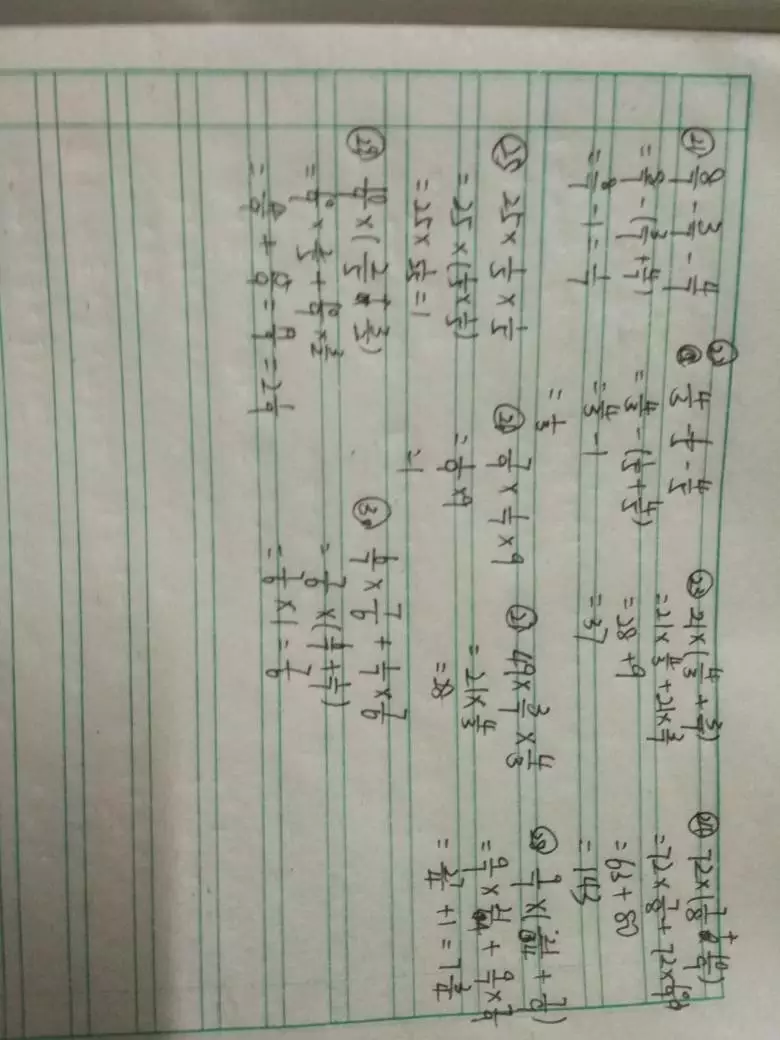 ㉑ 8/7 - 3/7 - 4/7
= 8/7 - (3/7 + 4/7)
= 8/7 - 1 = 1/7
㉒ 4/3 - 1/5 - 4/5
= 4/3 - (1/5 + 4/5)
= 4/3 - 1
= 1/3
㉓ 21×(4/3 + 3/7)
= 21×4/3 + 21×3/7
= 28 + 9
= 37
㉔ 72×(7/8 + 10/9)
= 72×7/8 + 72×10/9
= 63 + 80
= 143
㉕ 25 × 1/5 × 1/5
= 25 × (1/5 × 1/5)
= 25 × 1/25 = 1
㉖ 7/9 × 1/7 × 9
= 1/9 × 9
= 1
㉗ 49 × 3/7 × 4/3
= 21× 4/3
= 28
9/7 ×( + 7/9)
= 9/7 × + 9/7 × 7/9
= 27/4 + 1 = 7 3/4
㉙ 10/9 ×(2/5 + 3/2)
= 10/9 × 2/5 + 10/9 × 3/2
= 4/9 + = 19/9 = 2 1/9
㉚ 6/7 × 7/6 + 1/7 × 7/6
= 7/6 ×(6/7 + 1/7)
= 7/6 ×1 = 7/6